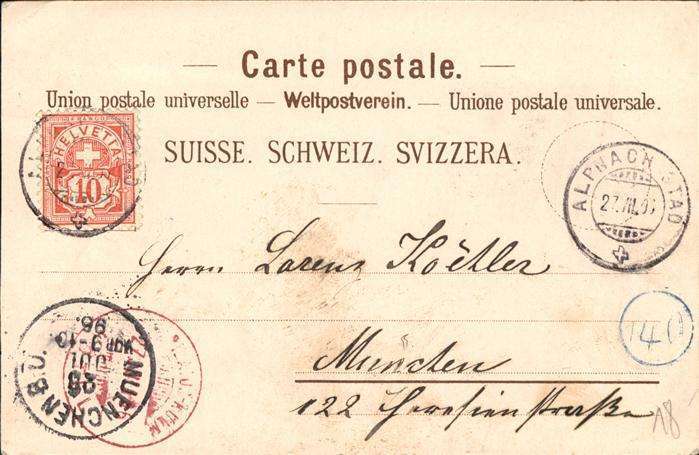 Carte postale.
Union postale universelle — Weltpostverein. — Unione postale universale.
HELVETIA
10
SUISSE. SCHWEIZ. SVIZZERA.
ALPNACH STAD
27.VII.96
Herrn Lorenz Koëtler
München
122 Theresienstraße
MUENCHEN B.O.
28
JUL
VOR 9-10
96.
18